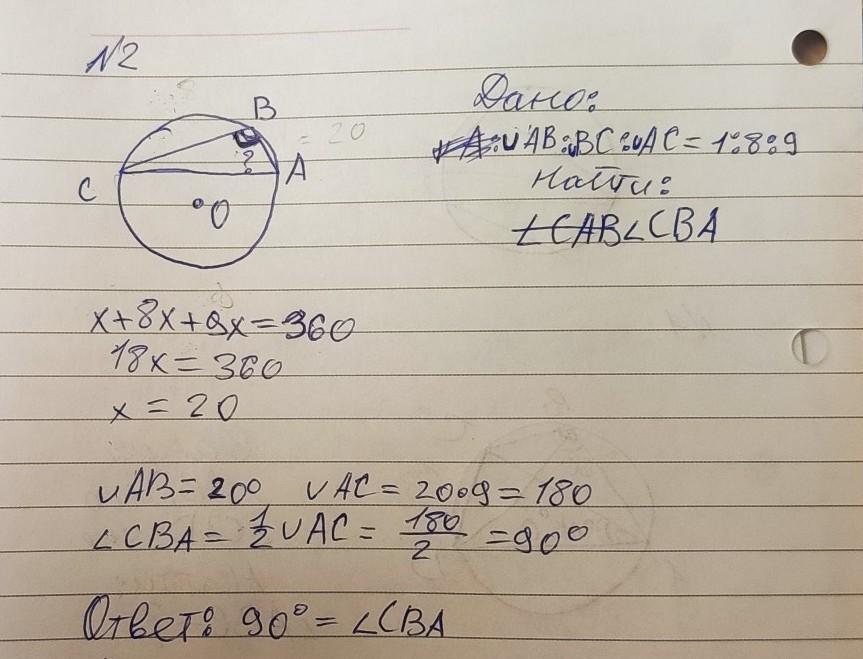 N2
Дано:
B
= 20
∪AB:∪BC:∪AC = 1:8:9
?
C
A
Найти:
O
∠CAB ∠CBA
x+8x+9x=360
18x=360
x = 20
∪AB= 20° ∪AC = 20∘9 = 180
∠CBA = 1/2 ∪AC = 180/2 =90°
Ответ: 90° = ∠CBA